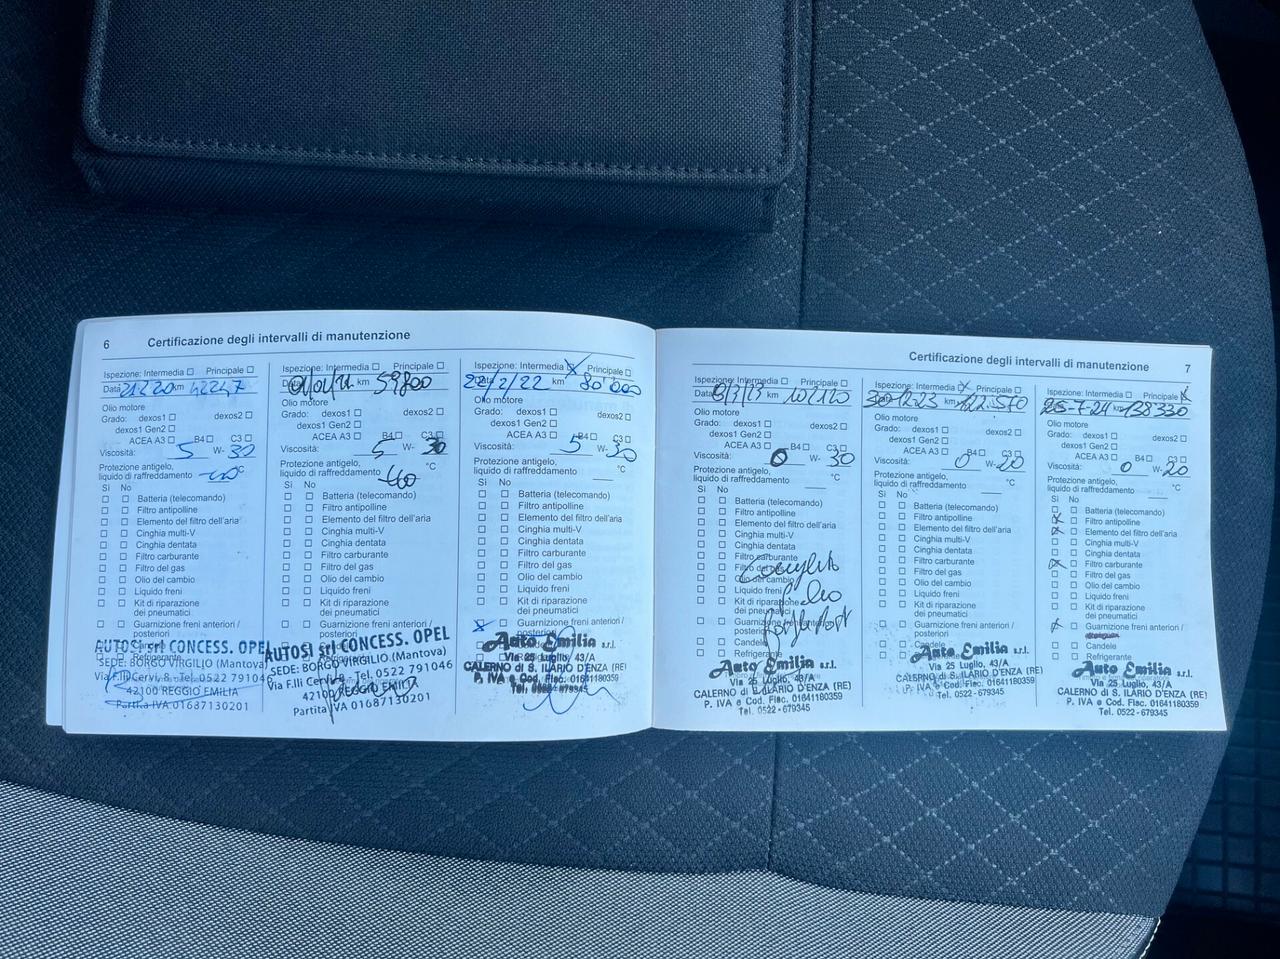 6 Certificazione degli intervalli di manutenzione
Ispezione: Intermedia Principale
Data km 42247
Olio motore
Grado: dexos1 dexos2
dexos1 Gen2
ACEA A3 B4 C3
Viscosità: 5 W- 30
Protezione antigelo,
liquido di raffreddamento °C
Sì No
Batteria (telecomando)
Filtro antipolline
Elemento del filtro dell'aria
Cinghia multi-V
Cinghia dentata
Filtro carburante
Filtro del gas
Olio del cambio
Liquido freni
Kit di riparazione
dei pneumatici
Guarnizione freni anteriori /
posteriori
Candele
Refrigerante
AUTOSI srl CONCESS. OPEL
SEDE: BORGO VIRGILIO (Mantova)
Via F.lli Cervi, 8 - Tel. 0522 791046
42100 REGGIO EMILIA
Partita IVA 01687130201
Ispezione: Intermedia Principale
Data km 59800
Olio motore
Grado: dexos1 dexos2
dexos1 Gen2
ACEA A3 B4 C3
Viscosità: 5 W- 30
Protezione antigelo,
liquido di raffreddamento °C
Sì No
Batteria (telecomando)
Filtro antipolline
Elemento del filtro dell'aria
Cinghia multi-V
Cinghia dentata
Filtro carburante
Filtro del gas
Olio del cambio
Liquido freni
Kit di riparazione
dei pneumatici
Guarnizione freni anteriori /
posteriori
AUTOSI srl CONCESS. OPEL
SEDE: BORGO VIRGILIO (Mantova)
Via F.lli Cervi Tel. 0522 791046
42100 REGGIO EMILIA
Partita IVA 01687130201
Ispezione: Intermedia X Principale
Data /2/22 km 80'000
Olio motore
Grado: dexos1 dexos2
dexos1 Gen2
ACEA A3 B4 C3
Viscosità: 5 W- 30
Protezione antigelo,
liquido di raffreddamento °C
Sì No
Batteria (telecomando)
Filtro antipolline
Elemento del filtro dell'aria
Cinghia multi-V
Cinghia dentata
Filtro carburante
Filtro del gas
Olio del cambio
Liquido freni
Kit di riparazione
dei pneumatici
X Guarnizione freni anteriori /
posteriori
Auto Emilia s.r.l.
Via 25 Luglio, 43/A
CALERNO di S. ILARIO D'ENZA (RE)
P. IVA e Cod. Fisc. 01641180359
Tel. 0522 - 679345
Certificazione degli intervalli di manutenzione 7
Ispezione: Intermedia Principale
Data /3/23 km 102120
Olio motore
Grado: dexos1 dexos2
dexos1 Gen2
ACEA A3 B4 C3
Viscosità: 0 W- 30
Protezione antigelo,
liquido di raffreddamento °C
Sì No
Batteria (telecomando)
Filtro antipolline
Elemento del filtro dell'aria
Cinghia multi-V
Cinghia dentata
Filtro carburante
Filtro del gas
Olio del cambio
Liquido freni
Kit di riparazione
dei pneumatici
Guarnizione freni anteriori /
posteriori
Candele
Refrigerante
Auto Emilia s.r.l.
Via 25 Luglio, 43/A
CALERNO di S. ILARIO D'ENZA (RE)
P. IVA e Cod. Fisc. 01641180359
Tel. 0522 - 679345
Ispezione: Intermedia X Principale
Data -12-23 km 122.570
Olio motore
Grado: dexos1 dexos2
dexos1 Gen2
ACEA A3 B4 C3
Viscosità: 0 W- 20
Protezione antigelo,
liquido di raffreddamento °C
Sì No
Batteria (telecomando)
Filtro antipolline
Elemento del filtro dell'aria
Cinghia multi-V
Cinghia dentata
Filtro carburante
Filtro del gas
Olio del cambio
Liquido freni
Kit di riparazione
dei pneumatici
Guarnizione freni anteriori /
posteriori
Candele
Auto Emilia s.r.l.
Via 25 Luglio, 43/A
CALERNO di S. ILARIO D'ENZA (RE)
P. IVA e Cod. Fisc. 01641180359
Tel. 0522 - 679345
Ispezione: Intermedia Principale X
Data -7-24 km 138330
Olio motore
Grado: dexos1 dexos2
dexos1 Gen2
ACEA A3 B4 C3
Viscosità: 0 W- 20
Protezione antigelo,
liquido di raffreddamento °C
Sì No
Batteria (telecomando)
X Filtro antipolline
X Elemento del filtro dell'aria
Cinghia multi-V
Cinghia dentata
X Filtro carburante
Filtro del gas
Olio del cambio
Liquido freni
Kit di riparazione
dei pneumatici
X Guarnizione freni anteriori /
Candele
Refrigerante
Auto Emilia s.r.l.
Via 25 Luglio, 43/A
CALERNO di S. ILARIO D'ENZA (RE)
P. IVA e Cod. Fisc. 01641180359
Tel. 0522 - 679345